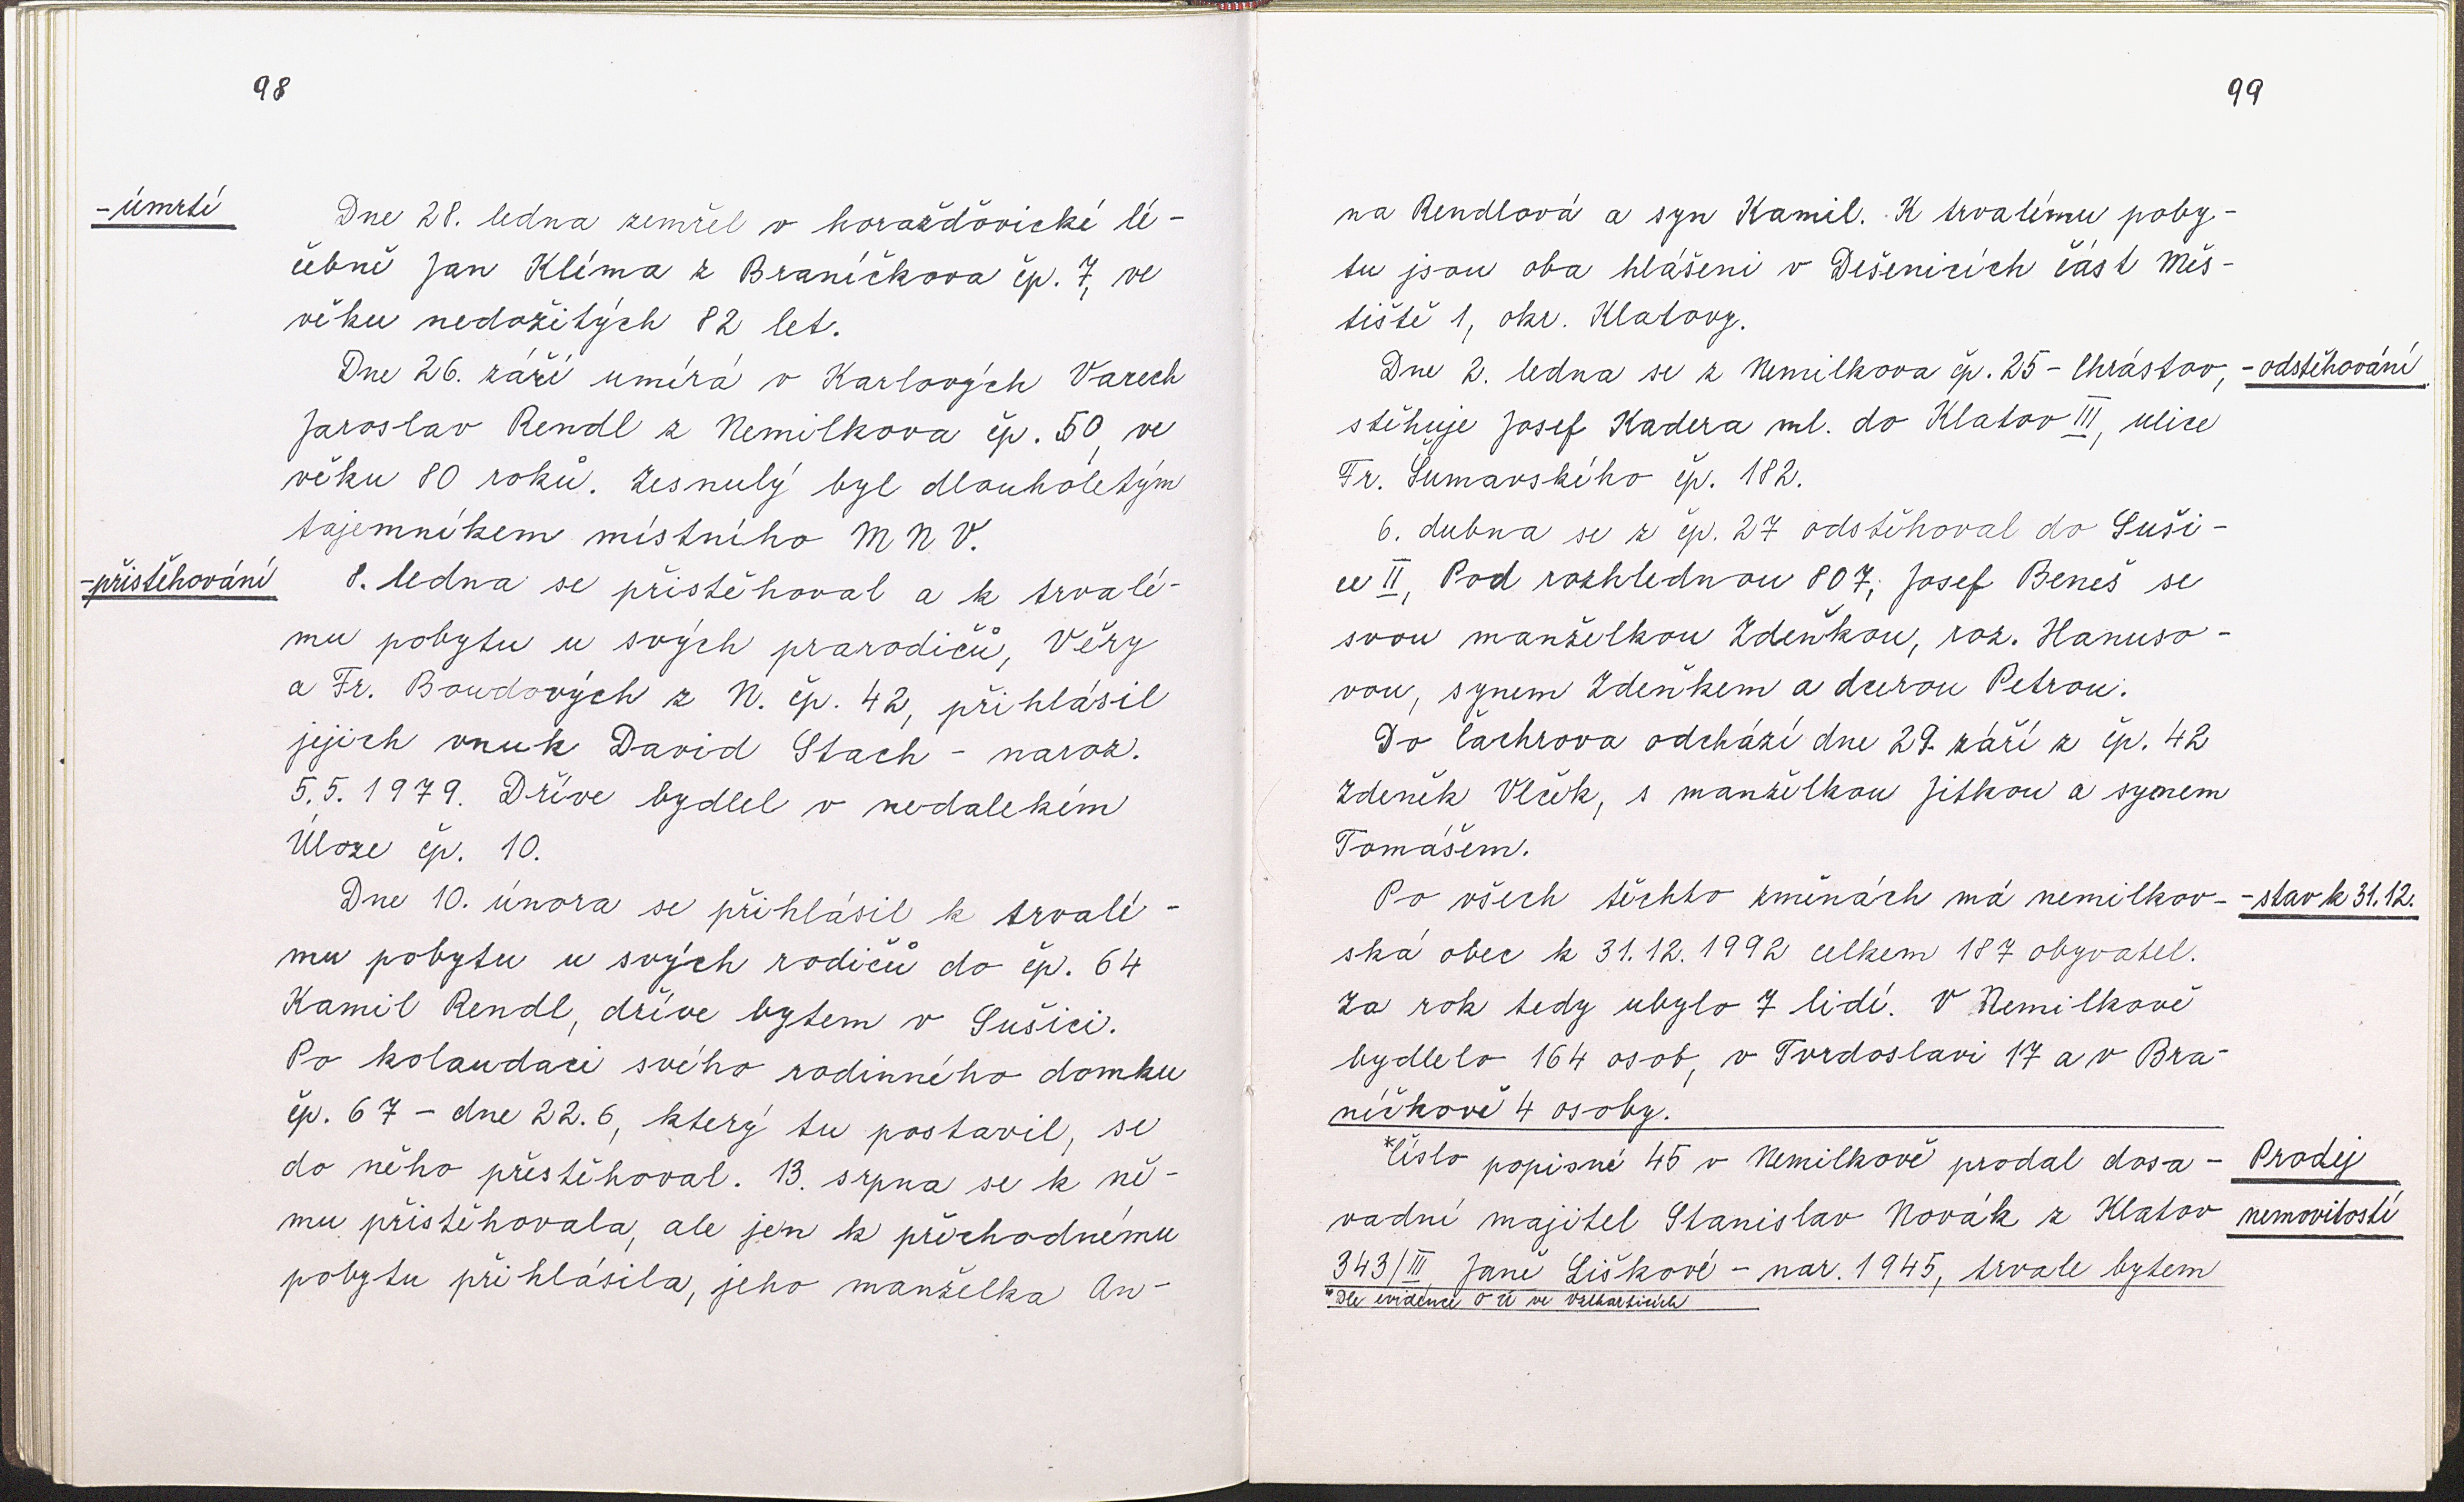 98
-úmrtí
Dne 28. ledna zemřel v horažďovické lé-
čebně Jan Klíma z Braníčkova čp. 7, ve
věku nedožitých 82 let.
Dne 26. září umírá v Karlových Varech
Jaroslav Rendl z Nemilkova čp. 50, ve
věku 80 roků. Zesnulý byl dlouholetým
tajemníkem místního MNV.
-přistěhování
8. ledna se přistěhoval a k trvalé-
mu pobytu u svých prarodičů, Věry
a Fr. Boudových z N. čp. 42, přihlásil
jejich vnuk David Stach - naroz.
5.5. 1979. Dříve bydlel v nedalekém
Úloze čp. 10.
Dne 10. února se přihlásil k trvalé-
mu pobytu u svých rodičů do čp. 64
Kamil Rendl, dříve bytem v Sušici.
Po kolaudaci svého rodinného domku
čp. 67 - dne 22.6, který tu postavil, se
do něho přestěhoval. 13. srpna se k ně-
mu přistěhovala, ale jen k přechodnému
pobytu přihlásila, jeho manželka An-
99
na Rendlová a syn Kamil. K trvalému poby-
tu jsou oba hlášeni v Dešenicích část Měs-
tiště 1, okr. Klatovy.
Dne 2. ledna se z Nemilkova čp. 25 - Chrástov,
-odstěhování
stěhuje Josef Kadera ml. do Klatov III, ulice
Fr. Šumavského čp. 182.
6. dubna se z čp. 27 odstěhoval do Suši-
ce II, Pod rozhlednou 807, Josef Beneš se
svou manželkou Zdeňkou, roz. Hanuso-
vou, synem Zdeňkem a dcerou Petrou.
Do Čachrova odchází dne 29. září z čp. 42
Zdeněk Vlček, s manželkou Jitkou a synem
Tomášem.
Po všech těchto změnách má nemilkov-
-stav k 31.12.
ská obec k 31.12. 1992 celkem 187 obyvatel.
Za rok tedy ubylo 7 lidí. V Nemilkově
bydlelo 164 osob, v Tvrdoslavi 17 a v Bra-
níčkově 4 osoby.
*Číslo popisné 45 v Nemilkově prodal dosa-
Prodej
vadní majitel Stanislav Novák z Klatov
nemovitosti
343/III, Janě Liškové - nar. 1945, trvale bytem
*Dle evidence OÚ ve Velharticích